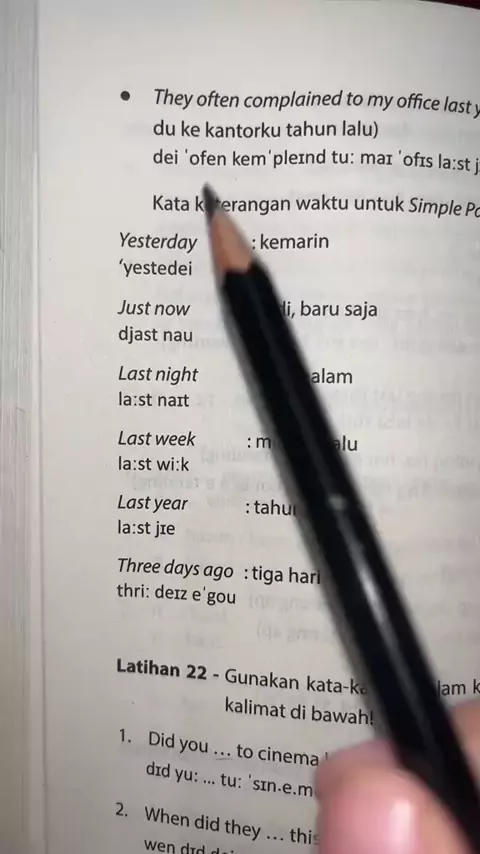 • They often complained to my office last
du ke kantorku tahun lalu)
dei ˈofen kemˈpleɪnd tu: maɪ ˈofɪs la:st
Kata keterangan waktu untuk Simple
Yesterday : kemarin
ʻyestedei
Just now baru saja
djast nau
Last night
la:st naɪt
Last week :
la:st wi:k
Last year :
la:st jɪe
Three days ago : tiga hari
thri: deɪz eˈgou
Latihan 22 - Gunakan
kalimat di bawah!
1. Did you ... to cinema
dɪd yu: ... tu:
2. When did they ...
wen dɪd